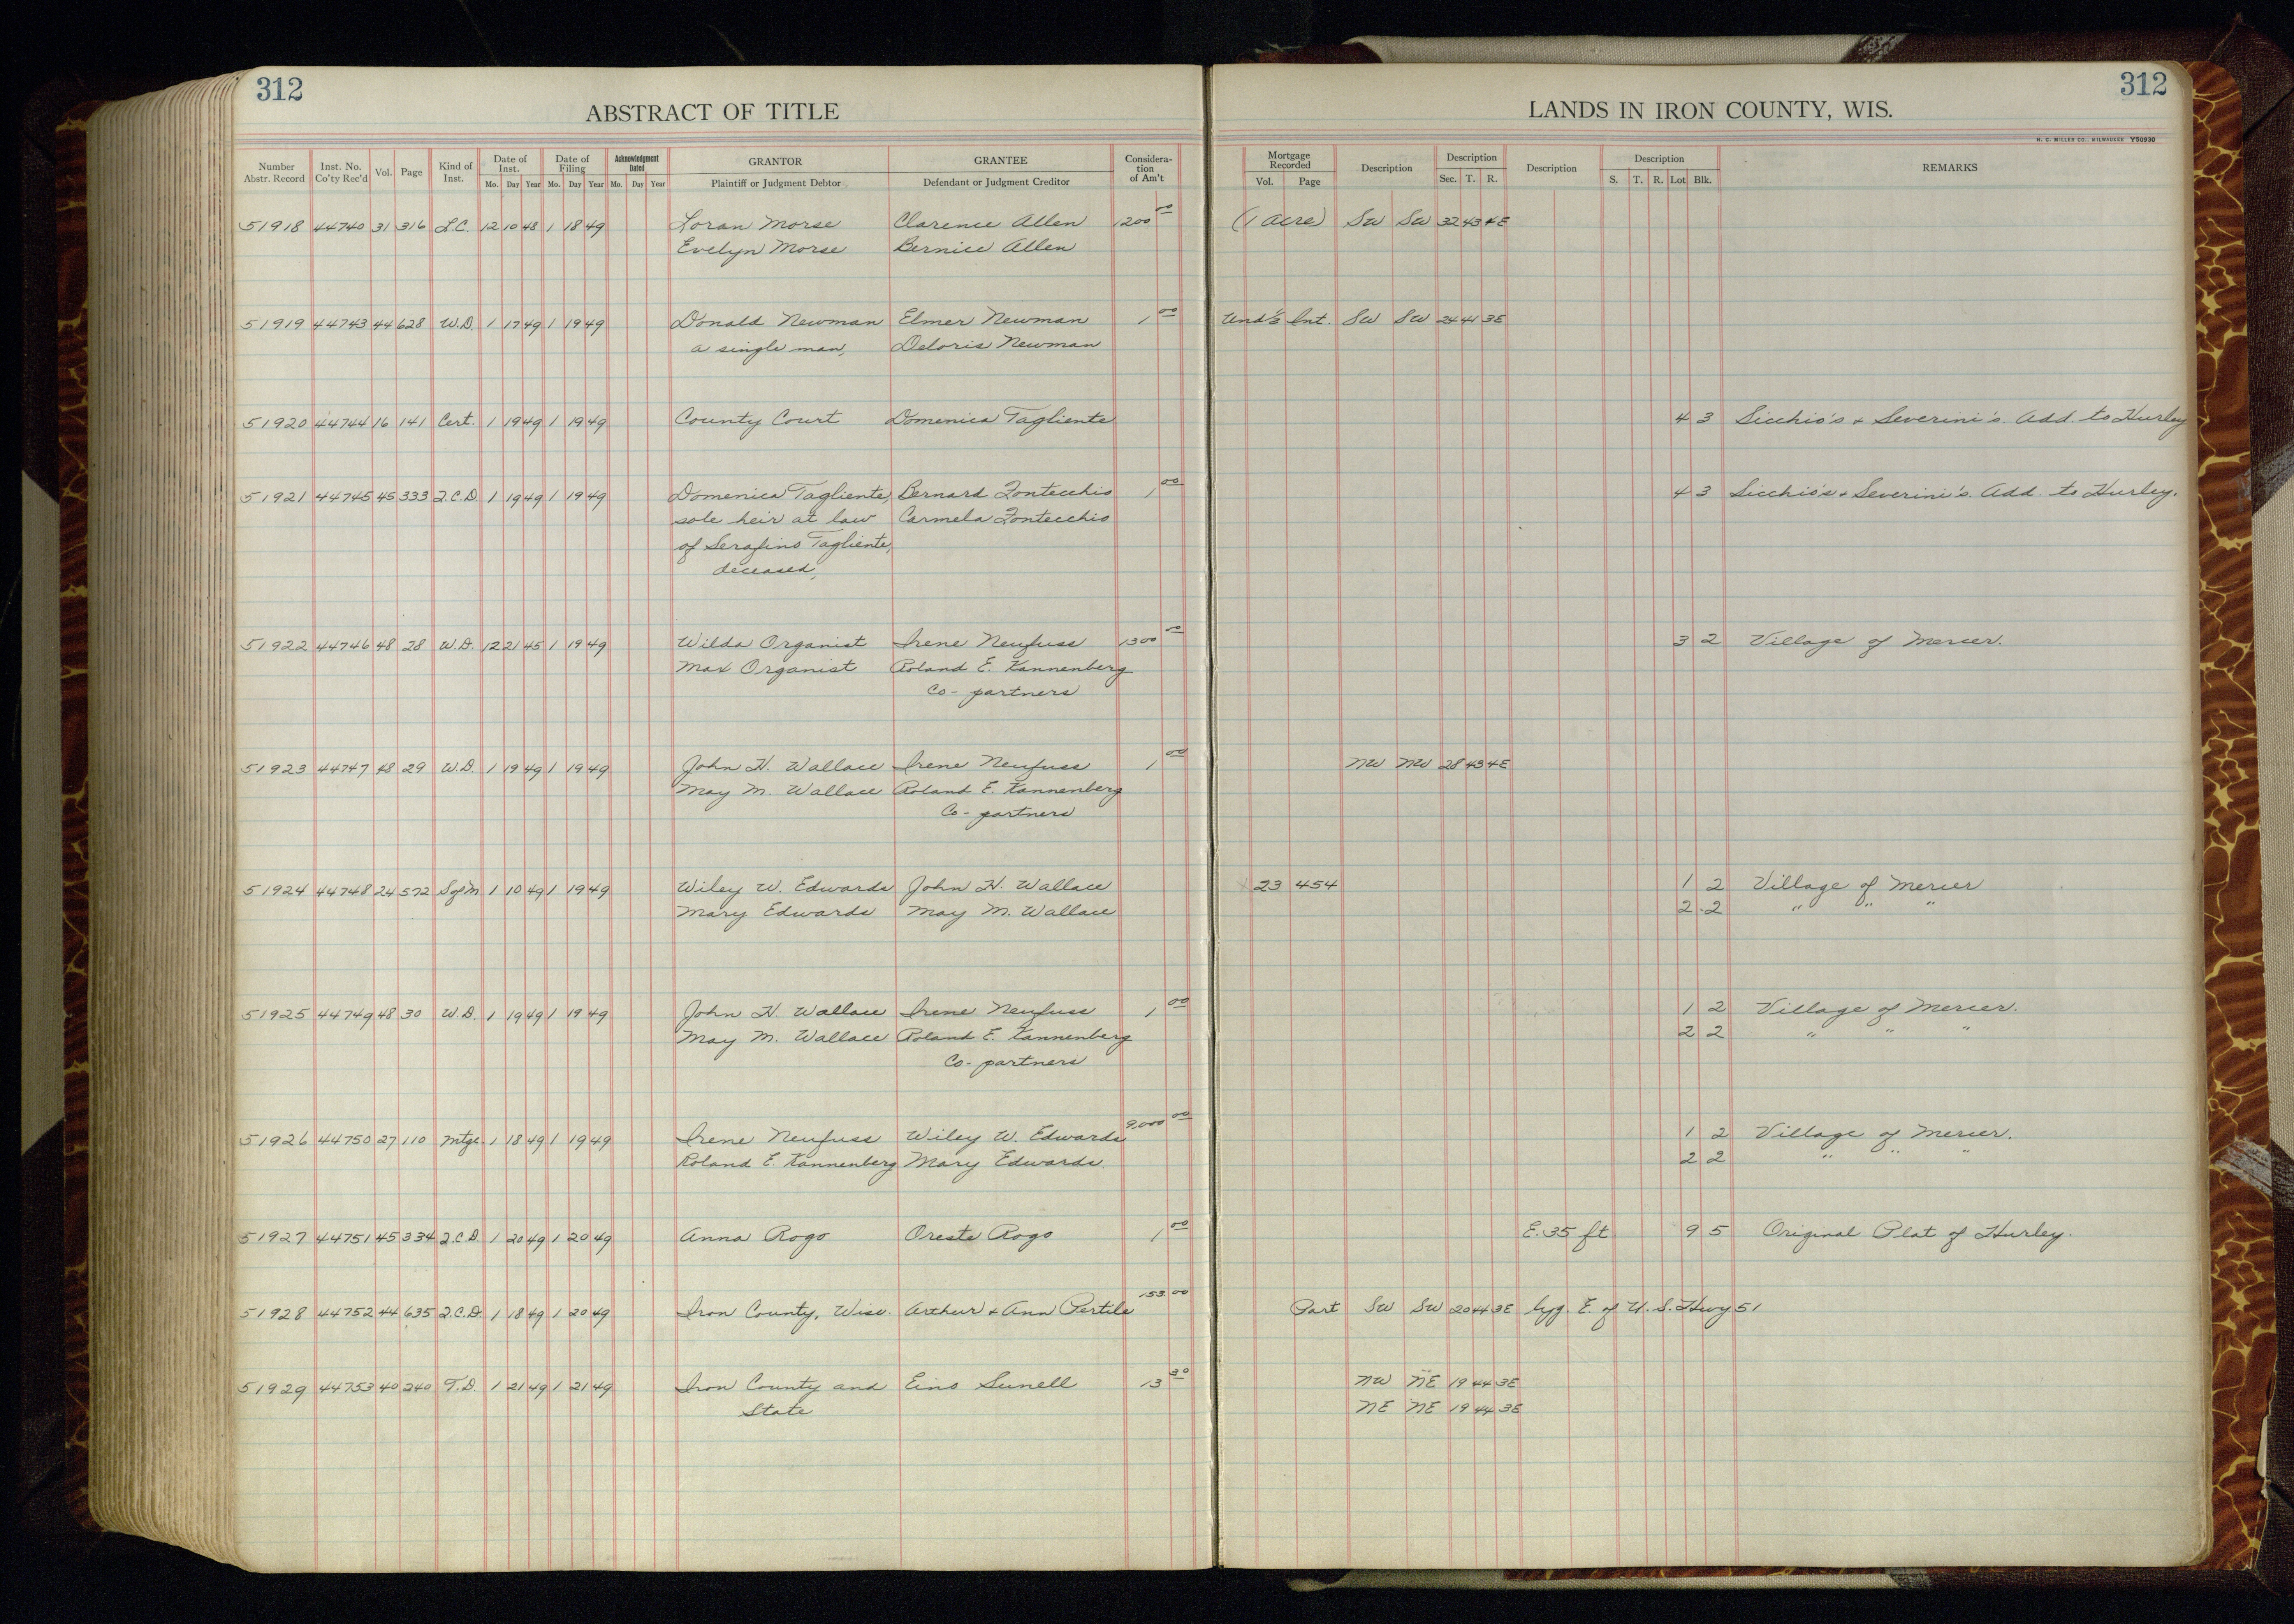 312
312
ABSTRACT OF TITLE
LANDS IN IRON COUNTY, WIS.
H. C. MILLER CO., MILWAUKEE Y50930
Number Abstr. Record Inst. No. Co'ty Rec'd Vol. Page Kind of Inst. Date of Inst. Mo. Day Year Date of Filing Mo. Day Year Acknowledgment Dated Mo. Day Year GRANTOR Plaintiff or Judgment Debtor GRANTEE Defendant or Judgment Creditor Considera-tion of Am't Mortgage Recorded Vol. Page Description Description Sec. T. R. Description Description S. T. R. Lot Blk. REMARKS
51918 44740 31 316 L.C. 12 10 48 1 18 49 Loran Morse Clarence Allen 1200 00 (1 acre) SW SW 32 43 4E
Evelyn Morse Bernice Allen
51919 44743 44 628 W.D. 1 17 49 1 19 49 Donald Newman Elmer Newman 1 00 Und ½ Int. SW SW 24 41 3E
a single man, Deloris Newman
51920 44744 16 141 Cert. 1 19 49 1 19 49 County Court Domenica Tagliente 4 3 Sicchio's & Severini's. Add. to Hurley
51921 44745 45 333 Q.C.D. 1 19 49 1 19 49 Domenica Tagliente, Bernard Fontecchio 1 00 4 3 Sicchio's & Severini's. Add. to Hurley.
sole heir at law Carmela Fontecchio
of Serafino Tagliente,
deceased,
51922 44746 48 28 W.D. 12 21 45 1 19 49 Wilda Organist Irene Neufuss 1300 00 3 2 Village of Mercer.
Max Organist Roland E. Kannenberg
Co-partners
51923 44747 48 29 W.D. 1 19 49 1 19 49 John H. Wallace Irene Neufuss 1 00 NW NW 28 43 4E
May M. Wallace Roland E. Kannenberg
Co-partners
51924 44748 24 572 S of M 1 10 49 1 19 49 Wiley W. Edwards John H. Wallace 23 454 1 2 Village of Mercer
Mary Edwards May M. Wallace 2 2 " " "
51925 44749 48 30 W.D. 1 19 49 1 19 49 John H. Wallace Irene Neufuss 1 00 1 2 Village of Mercer.
May M. Wallace Roland E. Kannenberg 2 2 " " "
Co-partners
51926 44750 27 110 Mtge. 1 18 49 1 19 49 Irene Neufuss Wiley W. Edwards 9,000 00 1 2 Village of Mercer.
Roland E. Kannenberg Mary Edwards. 2 2 " " "
51927 44751 45 334 Q.C.D. 1 20 49 1 20 49 Anna Rogo Oreste Rogo 1 00 E. 35 ft 9 5 Original Plat of Hurley.
51928 44752 44 635 Q.C.D. 1 18 49 1 20 49 Iron County, Wisc. Arthur & Ann Pertile 153 00 Part SW SW 20 44 3E lyg. E. of U.S. Hwy 51
51929 44753 40 240 T.D. 1 21 49 1 21 49 Iron County and Eino Sunell 13 30 NW NE 19 44 3E
State NE NE 19 44 3E